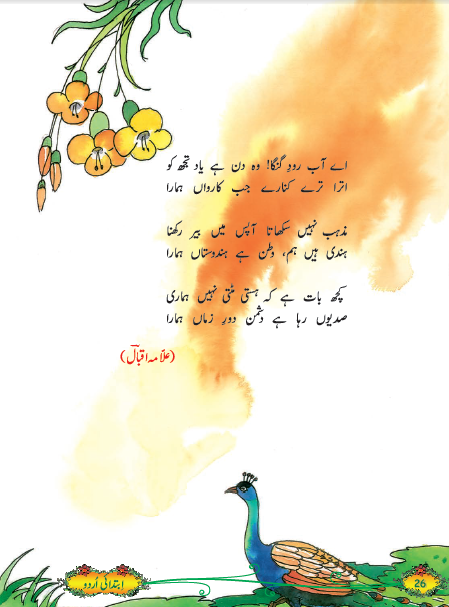 اے آب رودِ گنگا! وہ دن ہے یاد تجھ کو
اترا ترے کنارے جب کارواں ہمارا
مذہب نہیں سکھاتا آپس میں بیر رکھنا
ہندی ہیں ہم، وطن ہے ہندوستاں ہمارا
کچھ بات ہے کہ ہستی مٹتی نہیں ہماری
صدیوں رہا ہے دشمن دورِ زماں ہمارا
(علّامہ اقبالؔ)
ابتدائی اُردو
26